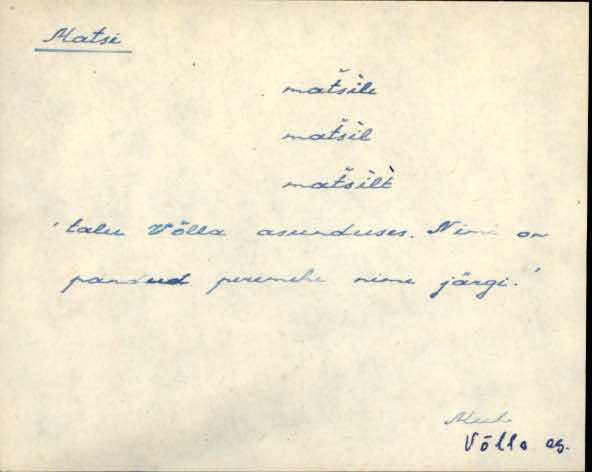 Matsi
matšile
matšil
matšilt
' talu Võlla asunduses. Nimi on
pandud peremehe nime järgi. '
Võlla as.